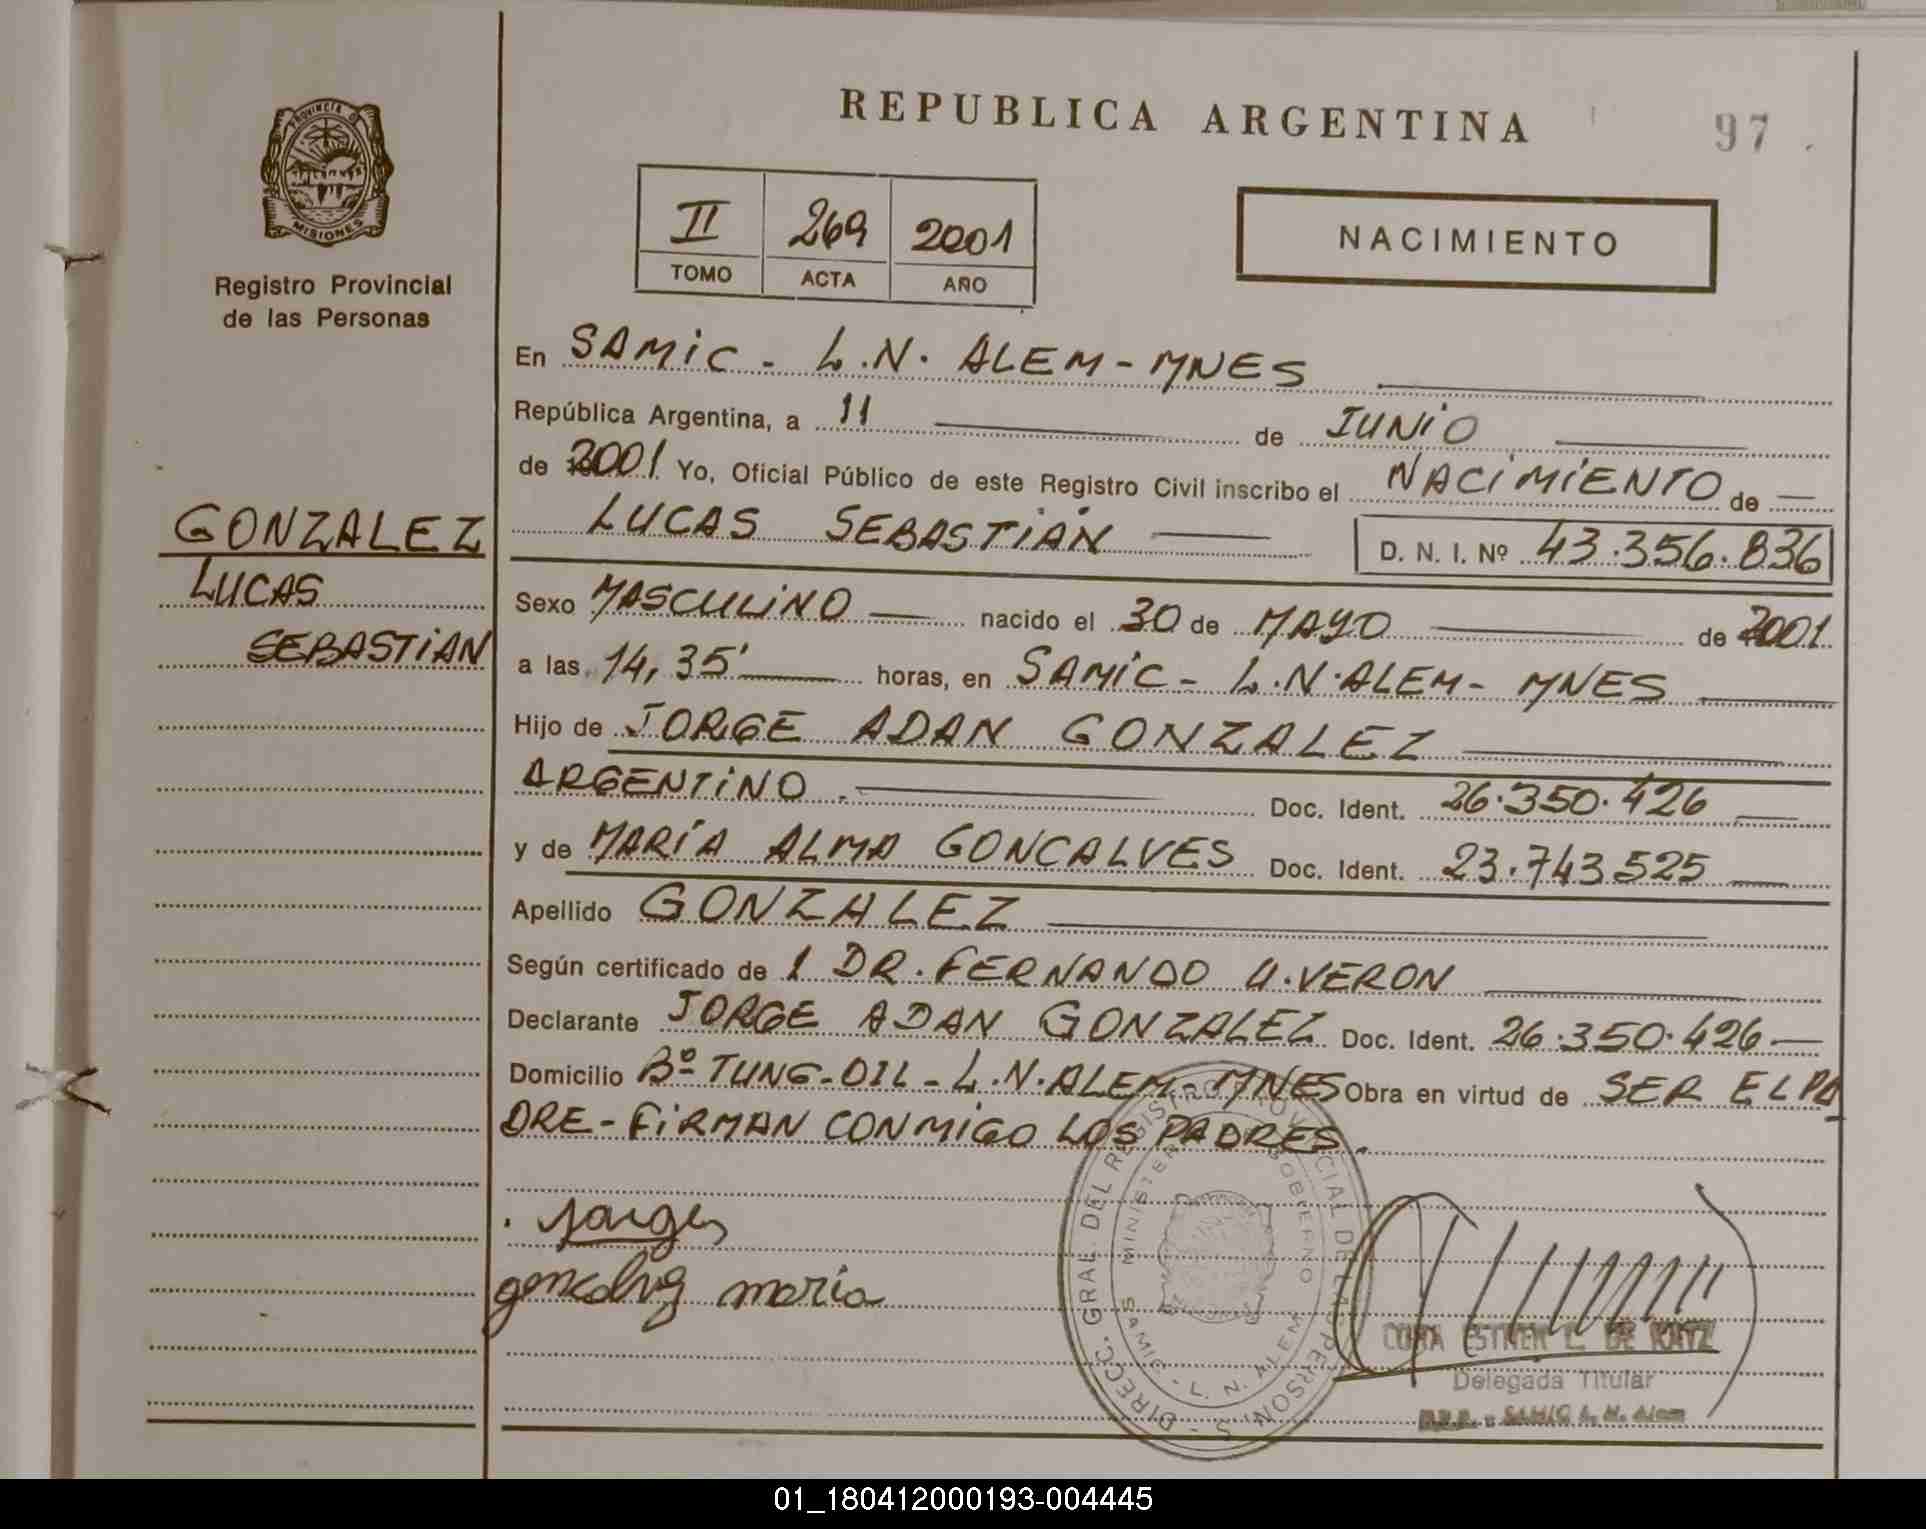 REPUBLICA ARGENTINA
97
PROVINCIA D
MISIONES
Registro Provincial
de las Personas
II 269 2001
TOMO ACTA AÑO
NACIMIENTO
GONZALEZ
LUCAS
SEBASTIAN
En SAMIC - L.N. ALEM - MNES
República Argentina, a 11 de JUNIO
de 2001 Yo, Oficial Público de este Registro Civil inscribo el NACIMIENTO de
LUCAS SEBASTIAN D. N. I. Nº 43.356.836
Sexo MASCULINO nacido el 30 de MAYO de 2001
a las 14,35' horas, en SAMIC - L.N. ALEM - MNES
Hijo de JORGE ADAN GONZALEZ
ARGENTINO. Doc. Ident. 26.350.426
y de MARÍA ALMA GONCALVES Doc. Ident. 23.743.525
Apellido GONZALEZ
Según certificado de 1 DR. FERNANDO U. VERON
Declarante JORGE ADAN GONZALEZ Doc. Ident. 26.350.426
Domicilio Bº TUNG-OIL - L.N. ALEM - MNES Obra en virtud de SER EL PA
DRE - FIRMAN CONMIGO LOS PADRES.
Jorge
maria
DIRECC. GRAL. DEL REGISTRO PROVINCIAL DE LAS PERSONAS
MINISTERIO GOBIERNO
SAMIC - L. N. ALEM
ESTHER L. DE KATZ
Delegada Titular
SAMIC L. N. Alem
01_180412000193-004445